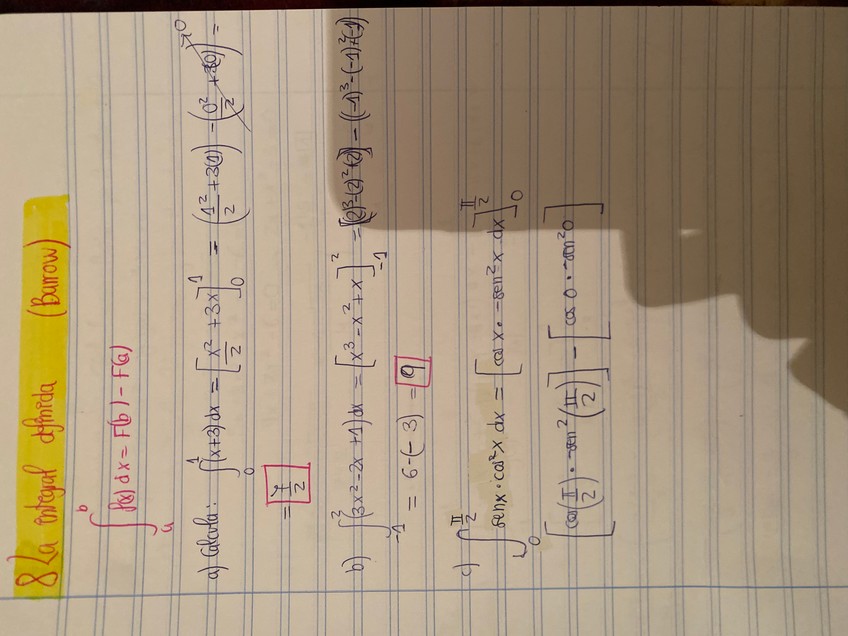 8 La integral definida (Barrow)
∫ₐᵇ f(x) dx = F(b) - F(a)
a) Calcula: ∫₀¹ (x+3) dx = [x²/2 + 3x]₀¹ = (1²/2 + 3(1)) - (0²/2 + 3(0))→0 =
= 7/2
b) ∫₋₁² (3x² - 2x + 1) dx = [x³ - x² + x]₋₁² = [(2)³ - (2)² + (2)] - ((-1)³ - (-1)² + (-1))
= 6 - (-3) = 9
c) ∫₀^(π/2) sen x · cos² x dx = [cos x · -sen² x dx]₀^(π/2)
[cos(π/2) · -sen²(π/2)] - [cos 0 · -sen² 0]